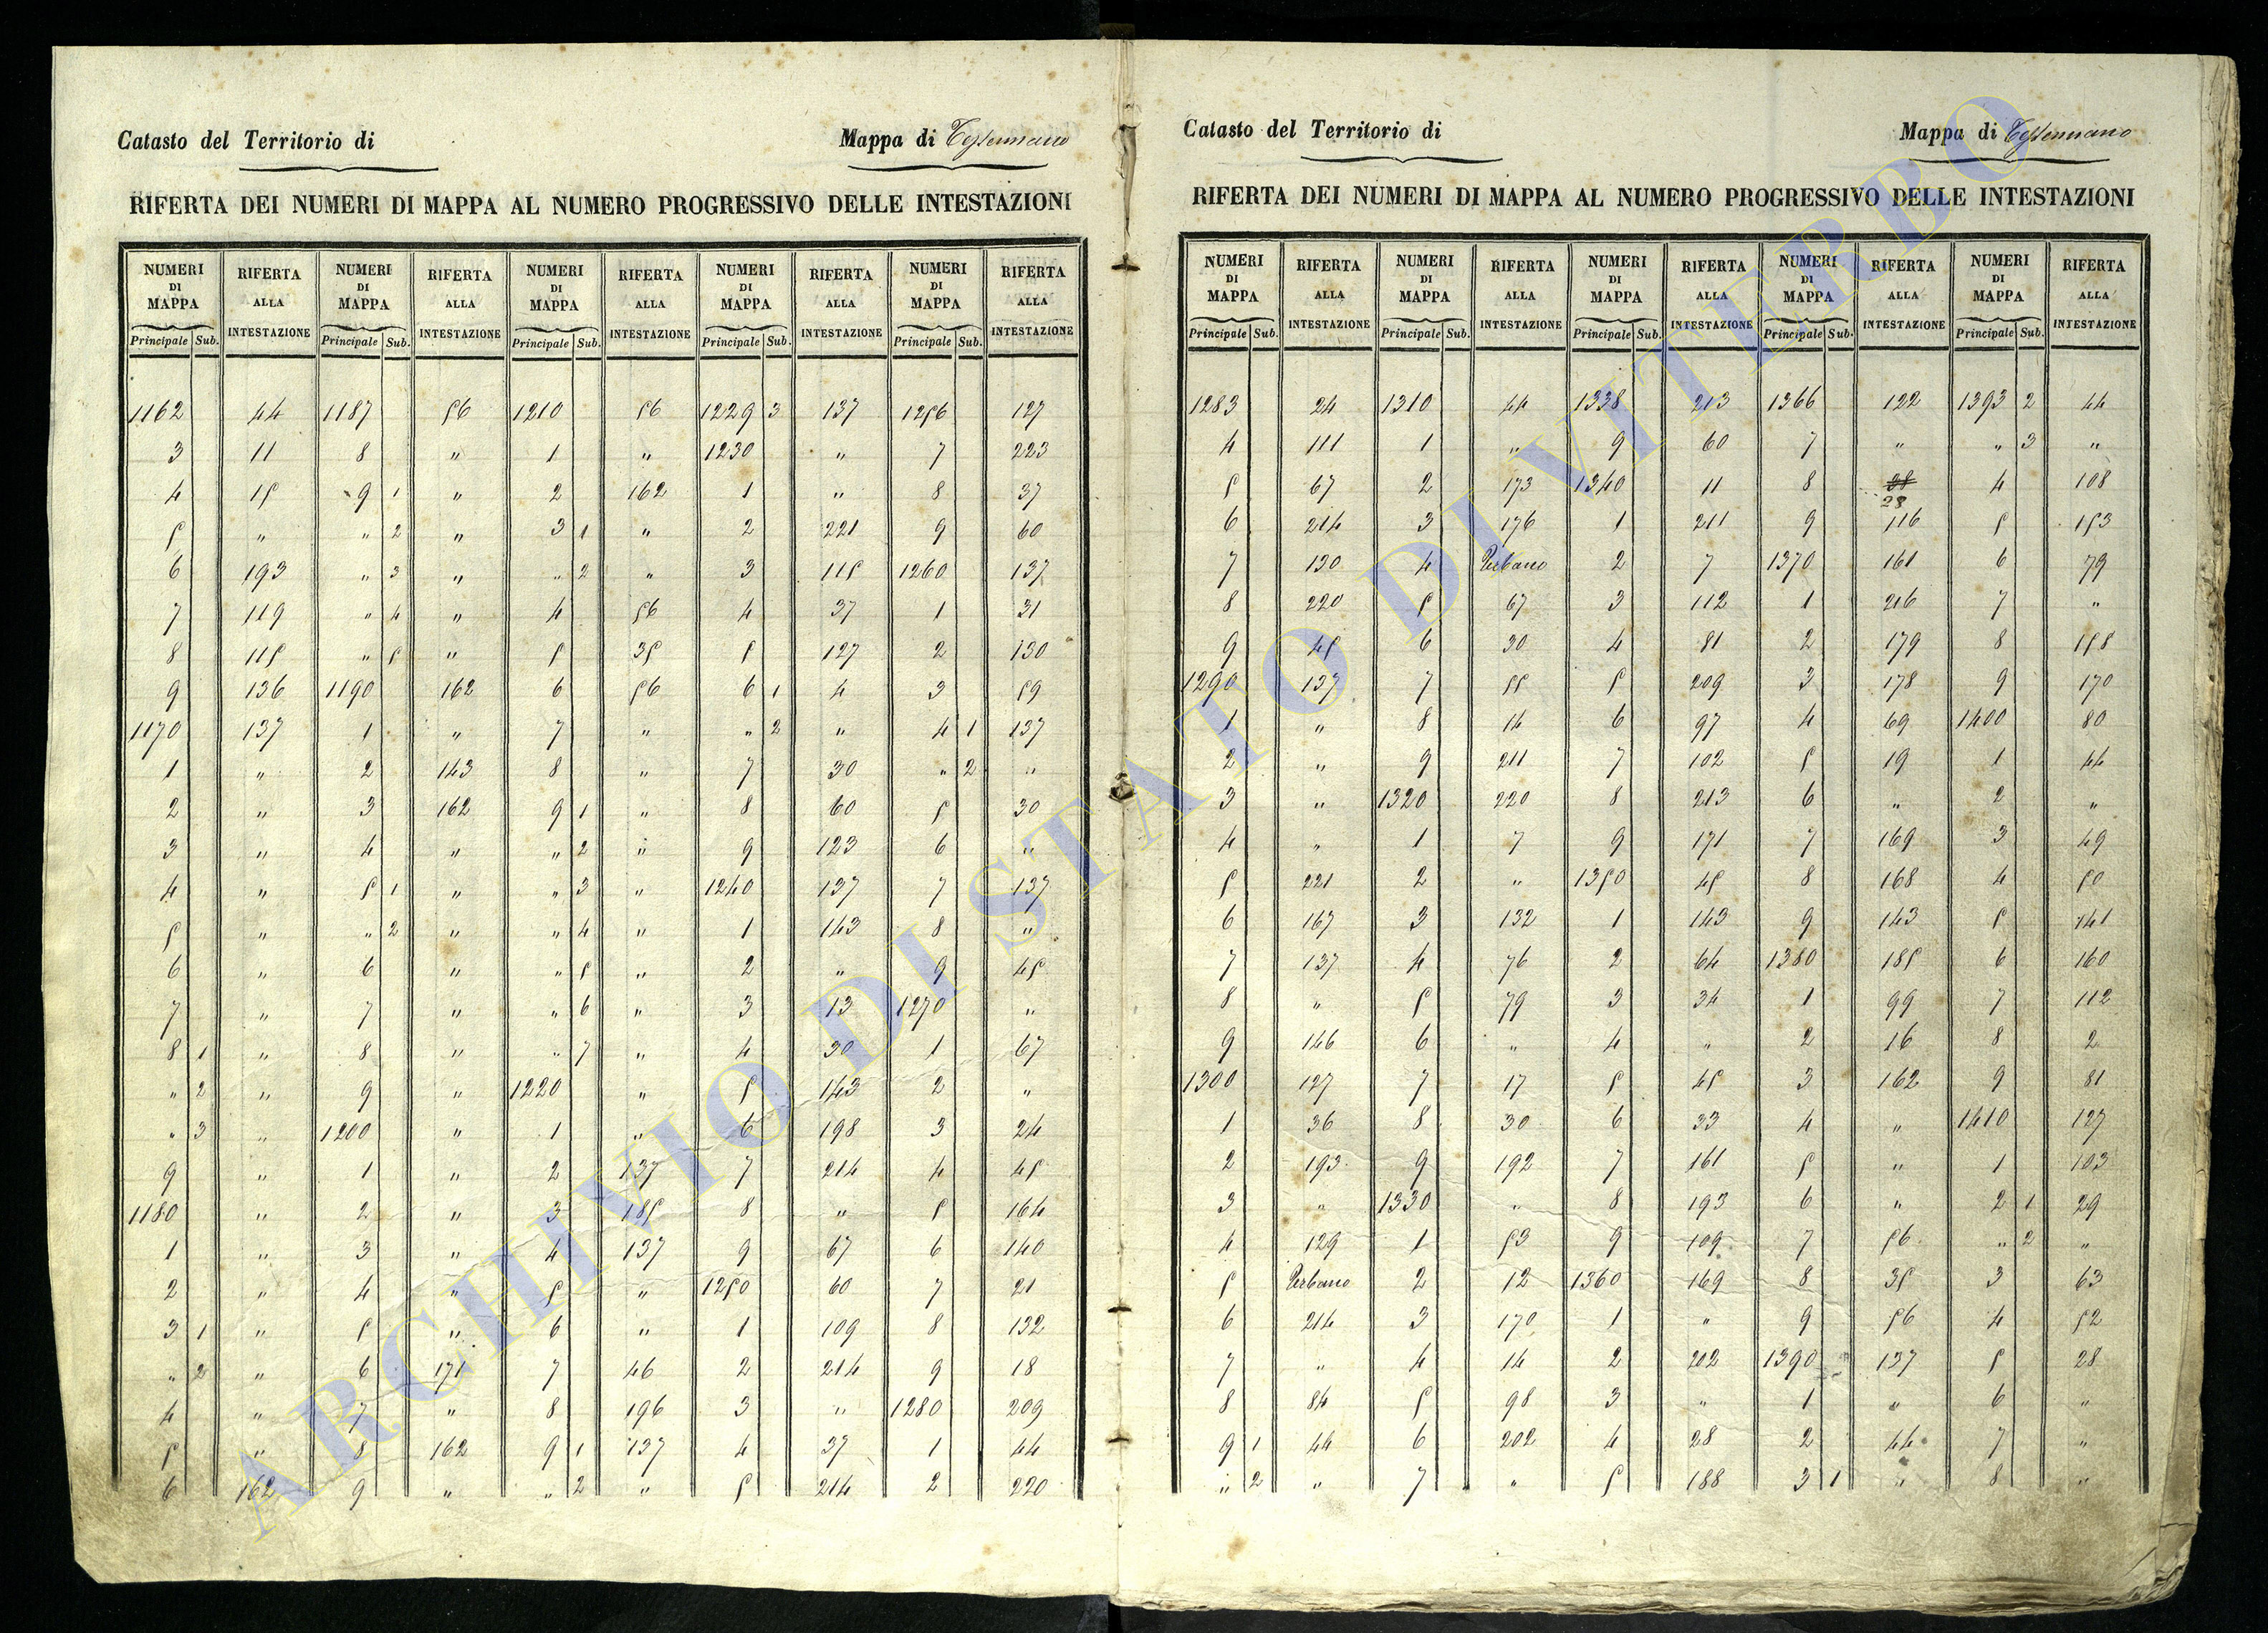 Catasto del Territorio di Mappa di Tessennano
RIFERTA DEI NUMERI DI MAPPA AL NUMERO PROGRESSIVO DELLE INTESTAZIONI
NUMERI DI MAPPA RIFERTA ALLA INTESTAZIONE NUMERI DI MAPPA RIFERTA ALLA INTESTAZIONE NUMERI DI MAPPA RIFERTA ALLA INTESTAZIONE NUMERI DI MAPPA RIFERTA ALLA INTESTAZIONE NUMERI DI MAPPA RIFERTA ALLA INTESTAZIONE
Principale Sub. Principale Sub. Principale Sub. Principale Sub. Principale Sub.
1162 44 1187 56 1210 56 1229 3 137 1256 127
3 11 8 " 1 " 1230 " 7 223
4 15 9 1 " 2 162 1 " 8 37
5 " " 2 " 3 1 " 2 221 9 60
6 193 " 3 " " 2 " 3 115 1260 137
7 119 " 4 " 4 56 4 37 1 31
8 115 " 5 " 5 35 5 127 2 130
9 136 1190 162 6 56 6 1 4 3 59
1170 137 1 " 7 " " 2 " 4 1 137
1 " 2 143 8 " 7 30 " 2 "
2 " 3 162 9 1 " 8 60 5 30
3 " 4 " " 2 " 9 123 6 "
4 " 5 1 " " 3 " 1240 137 7 137
5 " " 2 " " 4 " 1 143 8 "
6 " 6 " " 5 " 2 " 9 45
7 " 7 " " 6 " 3 13 1270 "
8 1 " 8 " " 7 " 4 30 1 67
" 2 " 9 " 1220 " 5 143 2 "
" 3 " 1200 " 1 " 6 198 3 24
9 " 1 " 2 137 7 214 4 45
1180 " 2 " 3 185 8 " 5 164
1 " 3 " 4 137 9 67 6 140
2 " 4 " 5 " 1250 60 7 21
3 1 " 5 " 6 " 1 109 8 132
" 2 " 6 171 7 46 2 214 9 18
4 " 7 " 8 196 3 " 1280 209
5 " 8 162 9 1 137 4 37 1 44
6 162 9 " " 2 " 5 214 2 220
Catasto del Territorio di Mappa di Tessennano
RIFERTA DEI NUMERI DI MAPPA AL NUMERO PROGRESSIVO DELLE INTESTAZIONI
NUMERI DI MAPPA RIFERTA ALLA INTESTAZIONE NUMERI DI MAPPA RIFERTA ALLA INTESTAZIONE NUMERI DI MAPPA RIFERTA ALLA INTESTAZIONE NUMERI DI MAPPA RIFERTA ALLA INTESTAZIONE NUMERI DI MAPPA RIFERTA ALLA INTESTAZIONE
Principale Sub. Principale Sub. Principale Sub. Principale Sub. Principale Sub.
1283 24 1310 44 1338 213 1366 122 1393 2 44
4 111 1 " 9 60 7 " " 3 "
5 67 2 173 1340 11 8 28 4 108
6 214 3 176 1 211 9 116 5 153
7 130 4 Urbano 2 7 1370 161 6 79
8 220 5 67 3 112 1 216 7 "
9 45 6 30 4 81 2 179 8 158
1290 137 7 55 5 209 3 178 9 170
1 " 8 14 6 97 4 69 1400 80
2 " 9 211 7 102 5 19 1 44
3 " 1320 220 8 213 6 " 2 "
4 " 1 7 9 171 7 169 3 49
5 221 2 " 1350 45 8 168 4 50
6 167 3 132 1 143 9 143 5 141
7 137 4 76 2 64 1380 185 6 160
8 " 5 79 3 34 1 99 7 112
9 146 6 " 4 " 2 16 8 2
1300 127 7 17 5 45 3 162 9 81
1 36 8 30 6 33 4 " 1410 127
2 193 9 192 7 161 5 " 1 103
3 " 1330 " 8 193 6 " 2 1 29
4 129 1 53 9 109 7 56 " 2 "
5 Urbano 2 12 1360 169 8 35 3 63
6 214 3 170 1 " 9 56 4 52
7 " 4 14 2 202 1390 137 5 28
8 84 5 98 3 " 1 " 6 "
9 1 44 6 202 4 28 2 44 7 "
" 2 " 7 " 5 188 3 1 " 8 "
ARCHIVIO DI STATO DI VITERBO